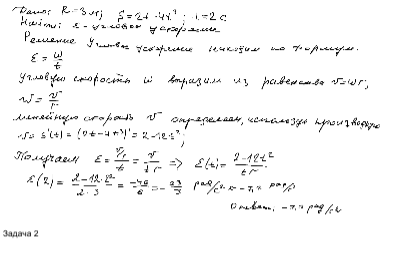 Дано: R = 3 м; S = 2t - 4t³; t = 2 c.
Найти: ε - угловое ускорение
Решение Угловое ускорение находим по формуле
ε = w/t
угловую скорость w выразим из равенства v = wr,
w = v/r
линейную скорость v определяем, используя производную
v = s'(t) = (2t - 4t³)' = 2 - 12t²;
Получаем ε = v/r/t = v/tr => ε(t) = 2-12t²/tr
ε(2) = 2-12·2²/2·3 = -46/6 = -23/3 рад/с²
Ответ: рад/с²
Задача 2